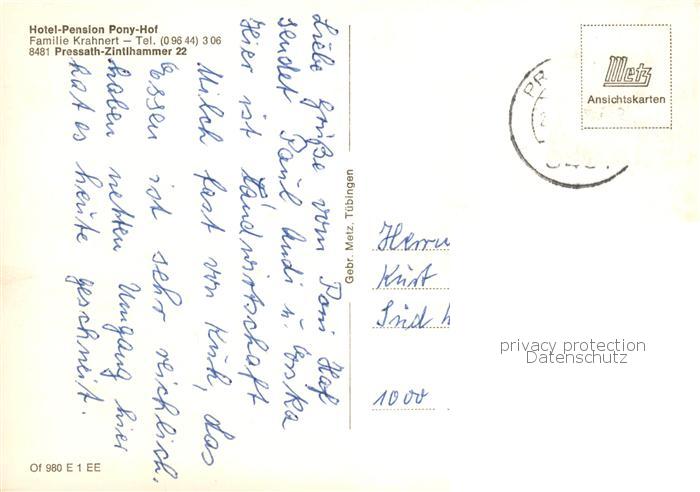 Hotel-Pension Pony-Hof
Familie Krahnert – Tel. (0 96 44) 3 06
8481 Pressath-Zintlhammer 22
Liebe Grüße vom Poni Hof
sendet Paul Andi u.
Hier ist Landwirtschaft
Milch fast von Kuh, das
Essen ist sehr reichlich.
haben netten Umgang hier
hat es heute geschneit.
Of 980 E 1 EE
Gebr. Metz, Tübingen
Metz
Ansichtskarten
PR
Herrn
Kurt
Süd
1000
privacy protection
Datenschutz